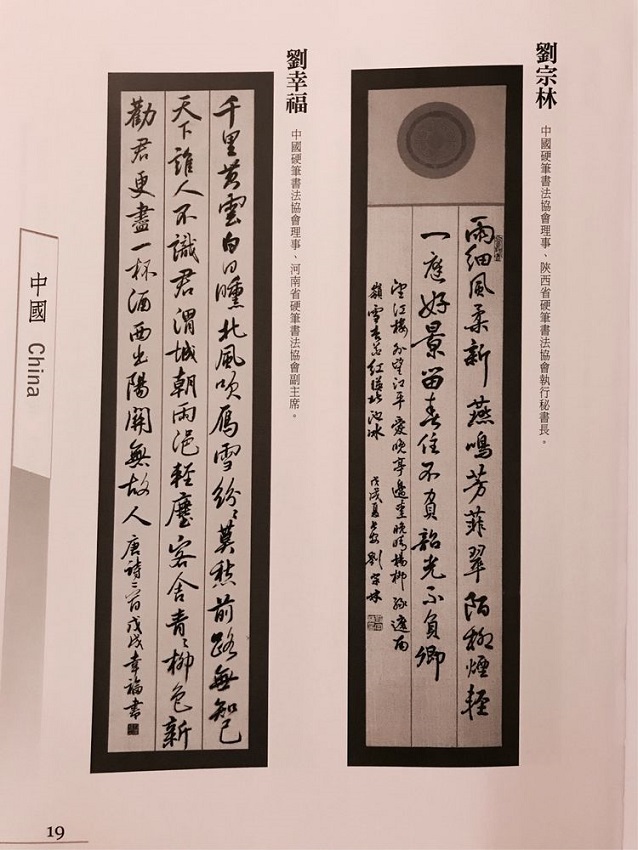 劉宗林
中國硬筆書法協會理事、陝西省硬筆書法協會執行秘書長。
雨細風柔新燕鳴芳菲翠陌柳煙輕
一庭好景留春住不負韶光不負卿
望江樓外望江平愛晚亭邊望晚晴楊柳綠遮南
嶺雪杏花紅送北池冰 戊戌夏長安劉宗林
劉幸福
中國硬筆書法協會理事、河南省硬筆書法協會副主席。
千里黃雲白日曛北風吹雁雪紛〻莫愁前路無知己
天下誰人不識君渭城朝雨浥輕塵客舍青〻柳色新
勸君更盡一杯酒西出陽關無故人 唐詩二首戊戌幸福書
中國 China
19